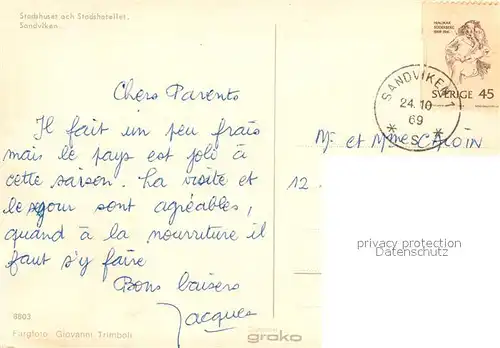 Stadshuset och Stadshotellet,
Sandviken.
Chers Parents
Il fait un peu frais
mais le pays est joli à
cette saison. La visite et
le séjour sont agréables,
quand à la nourriture il
faut s'y faire
Bons baisers
Jacques
8603
Färgfoto: Giovanni Trimboli
HJALMAR
SÖDERBERG
1869 1941
SVERIGE 45
SANDVIKEN 1
24.10
69
* S *
Mr et Mme CALOIN
12.
privacy protection
Datenschutz
grako